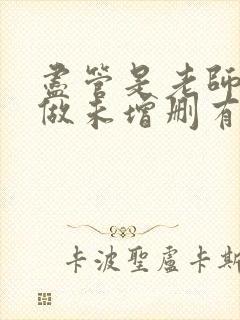 盡管是老師
做未增刪有
卡波聖盧卡斯